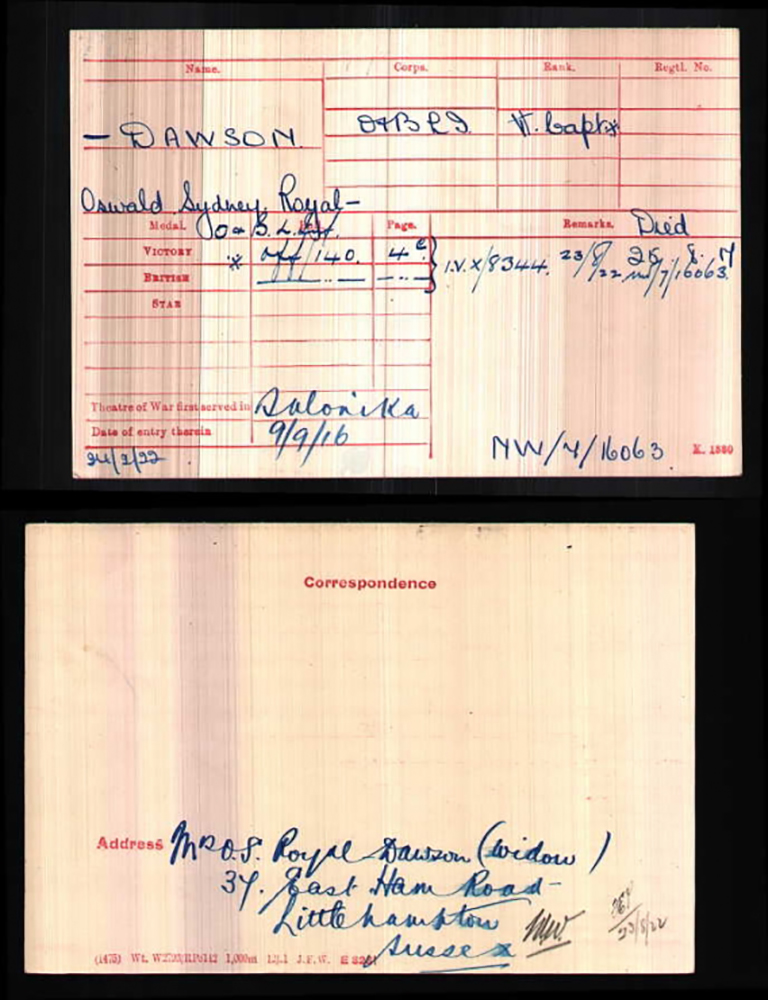 Name. Corps. Rank. Regtl. No.
— DAWSON. O & B L I. T. Capt *
Oswald Sydney Royal —
Medal. O & B. L. I. Page. Remarks. Died
VICTORY * Off/140. 4 I.V. X/8344. 23/8/22
BRITISH — " — — " — NW/7/16063.
STAR
Theatre of War first served in Salonika
Date of entry therein 9/9/16
NW/7/16063 K. 1380
Correspondence
Address Mrs O. S. Royal Dawson (widow)
37. East Ham Road —
Littlehampton
Sussex
23/8/22